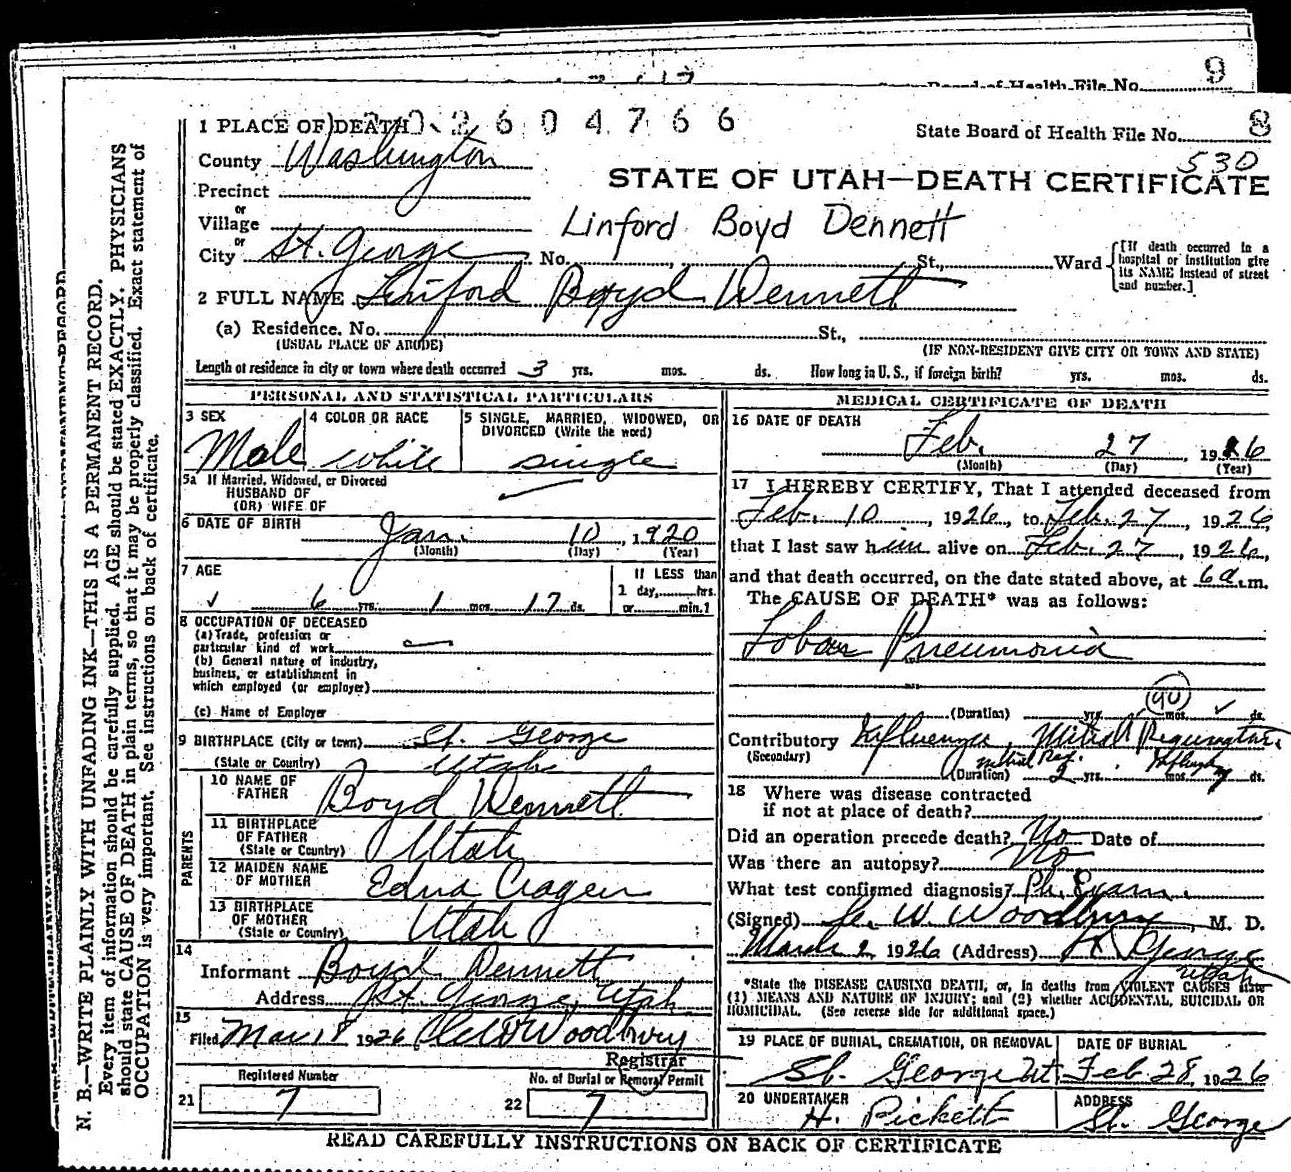 9
Board of Health File No.
2604766
1 PLACE OF DEATH
State Board of Health File No. 8
530
County Washington
STATE OF UTAH—DEATH CERTIFICATE
Precinct
or
Village
Linford Boyd Dennett
or
City St. George No. St., Ward
[If death occurred in a hospital or institution give its NAME instead of street and number.]
2 FULL NAME Linford Boyd Dennett
(a) Residence. No. St.,
(USUAL PLACE OF ABODE)
(IF NON-RESIDENT GIVE CITY OR TOWN AND STATE)
Length of residence in city or town where death occurred 3 yrs. mos. ds. How long in U. S., if foreign birth? yrs. mos. ds.
PERSONAL AND STATISTICAL PARTICULARS
3 SEX
Male
4 COLOR OR RACE
white
5 SINGLE, MARRIED, WIDOWED, OR
DIVORCED (Write the word)
single
5a If Married, Widowed, or Divorced
HUSBAND OF
(OR) WIFE OF
6 DATE OF BIRTH
Jan. 10, 1920
(Month) (Day) (Year)
7 AGE
6 yrs. 1 mos. 17 ds.
If LESS than
1 day, hrs.
or min.?
8 OCCUPATION OF DECEASED
(a) Trade, profession or
particular kind of work
(b) General nature of industry,
business, or establishment in
which employed (or employer)
(c) Name of Employer
9 BIRTHPLACE (City or town) St. George
(State or Country) Utah
PARENTS
10 NAME OF
FATHER Boyd Dennett
11 BIRTHPLACE
OF FATHER
(State or Country) Utah
12 MAIDEN NAME
OF MOTHER Edna Cragun
13 BIRTHPLACE
OF MOTHER
(State or Country) Utah
14
Informant Boyd Dennett
Address St. George, Utah
15
Filed Mar 18 1926 Woodbury
Registrar
Registered Number
21 7
No. of Burial or Removal Permit
22 7
MEDICAL CERTIFICATE OF DEATH
16 DATE OF DEATH
Feb. 27 1926
(Month) (Day) (Year)
17 I HEREBY CERTIFY, That I attended deceased from
Feb. 10, 1926, to Feb. 27, 1926,
that I last saw him alive on Feb. 27, 1926,
and that death occurred, on the date stated above, at 6 a.m.
The CAUSE OF DEATH* was as follows:
Lobar Pneumonia
90
(Duration) yrs. mos. ds.
Contributory Influenza, Mitral Regurgitation
(Secondary) Mitral Reg.
(Duration) 2 yrs. mos. ds.
18 Where was disease contracted
if not at place of death?
Did an operation precede death? No Date of
Was there an autopsy? No
What test confirmed diagnosis? Ph. Exam.
(Signed) W. Woodbury, M. D.
March 2 1926 (Address) St George
Utah
*State the DISEASE CAUSING DEATH, or, in deaths from VIOLENT CAUSES state
(1) MEANS AND NATURE OF INJURY; and (2) whether ACCIDENTAL, SUICIDAL OR
HOMICIDAL. (See reverse side for additional space.)
19 PLACE OF BURIAL, CREMATION, OR REMOVAL
St. George Ut.
DATE OF BURIAL
Feb 28 1926
20 UNDERTAKER
H. Pickett
ADDRESS
St. George
READ CAREFULLY INSTRUCTIONS ON BACK OF CERTIFICATE
N. B.—WRITE PLAINLY WITH UNFADING INK—THIS IS A PERMANENT RECORD.
Every item of information should be carefully supplied. AGE should be stated EXACTLY. PHYSICIANS
should state CAUSE OF DEATH in plain terms, so that it may be properly classified. Exact statement of
OCCUPATION is very important. See instructions on back of certificate.